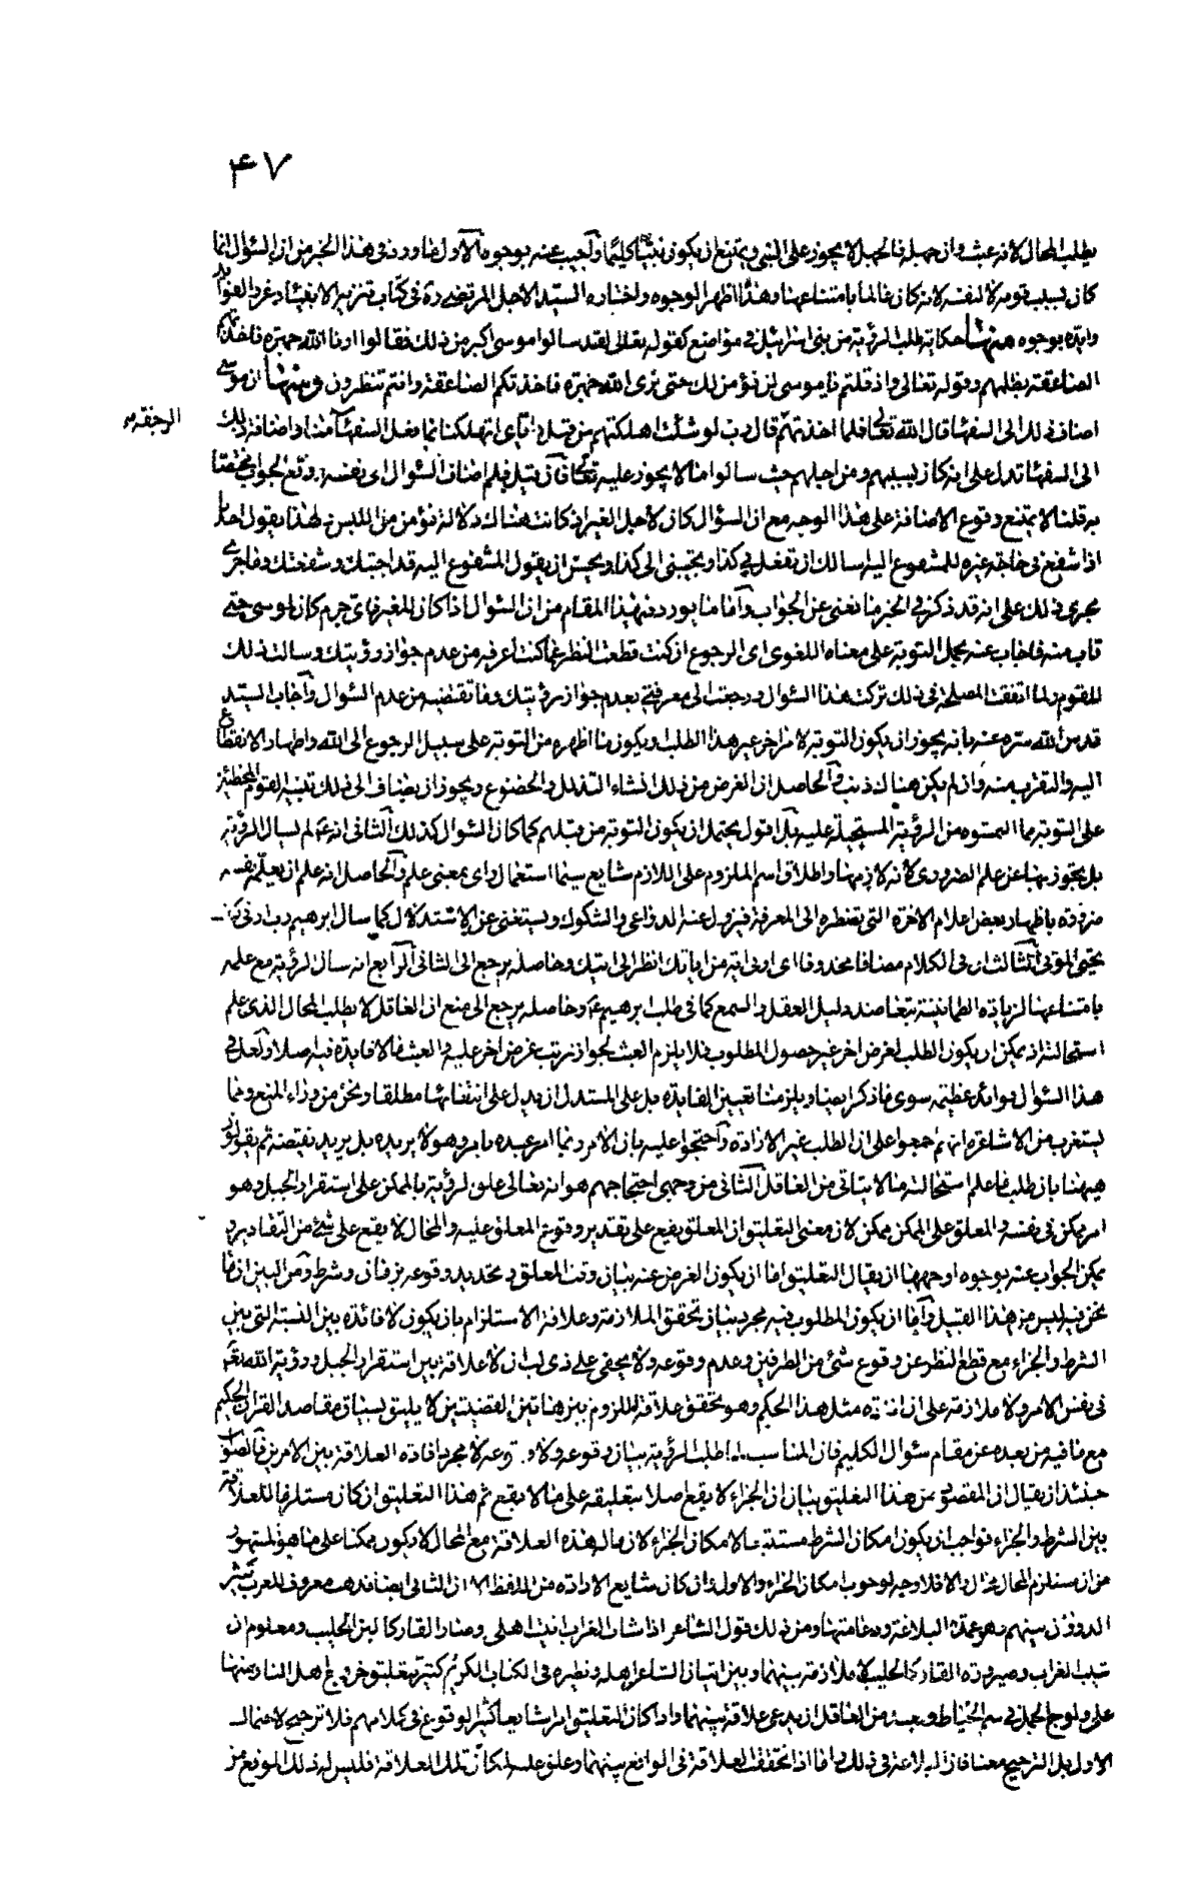 ۴۷
يطلب المحال لانه عبث وان جهله فالجهل لا يجوز على النبي ويمتنع ان يكون نبيا كليما واجيب عنه بوجوه الاول ما ورد في هذا الخبر من ان السؤال انما
كان بسبب قومه لا لنفسه لانه كان عالما بامتناعها وهذا اظهر الوجوه واختاره السيد الاجل المرتضى ره في كتاب تنزيه الانبياء وغرر الفوائد
وايده بوجوه منها حكاية طلب الرؤية من بني اسرائيل في مواضع كقوله تعالى فقد سالوا موسى اكبر من ذلك فقالوا ارنا الله جهرة فاخذتهم
الصاعقة بظلمهم وقوله تعالى واذ قلتم يا موسى لن نؤمن لك حتى نرى الله جهرة فاخذتكم الصاعقة وانتم تنظرون ومنها ان موسى
اضاف ذلك الى السفهاء قال الله تعالى فلما اخذتهم قال رب لو شئت اهلكتهم من قبل واياي اتهلكنا بما فعل السفهاء منا واضافة ذلك
الرجفة
الى السفهاء تدل على انه كان بسببهم ومن اجلهم حيث سالوا ما لا يجوز عليه تعالى فان قيل فلم اضاف السؤال الى نفسه ووقع الجواب مختصا
به قلنا لا يمتنع وقوع الاضافة على هذا الوجه مع ان السؤال كان لاجل الغير اذ كانت هناك دلالة تؤمن من اللبس فلهذا يقول احدنا
اذا شفع في حاجة غيره للمشفوع اليه اسالك ان تفعل بي كذا وتجيبني الى كذا ويحسن ان يقول المشفوع اليه قد اجبتك وشفعتك وما جرى
مجرى ذلك على انه قد ذكر في الخبر ما يغني عن الجواب واما ما يورد في هذا المقام من ان السؤال اذا كان للغير فاي جرم كان لموسى حتى
تاب منه فاجاب عنه بحمل التوبة على معناه اللغوي اي الرجوع اي كنت قطعت النظر عما كنت اعرفه من عدم جواز رؤيتك وسالت ذلك
للقوم ولما انقضت المصلحة في ذلك تركت هذا السؤال ورجعت الى معرفتي بعدم جواز رؤيتك وما تقتضيه من عدم السؤال واجاب السيد
قدس الله سره عنه بانه يجوز ان يكون التوبة لامر اخر غير هذا الطلب او يكون ما اظهره من التوبة على سبيل الرجوع الى الله واظهار الانقطاع
اليه والتقرب منه وان لم يكن هناك ذنب والحاصل ان الغرض من ذلك انشاء التذلل والخضوع ويجوز ان يضاف الى ذلك تنبيه القوم المخطئين
على التوبة مما التمسوه من الرؤية المستحيلة عليه بل اقول يحتمل ان يكون التوبة من قبلهم كما كان السؤال كذلك الثاني انه ع لم يسال الرؤية
بل تجوز بها عن علم الضروري لانه لازمها واطلاق اسم الملزوم على اللازم شايع سيما استعمال راى بمعنى علم والحاصل انه علم ان يعلمه نفسه
ضرورة باظهار بعض اعلام الاخرة التي تضطره الى المعرفة فيزول عنه الدواعي والشكوك ويستغني عن الاستدلال كما سال ابرهيم رب ارني كيف
تحيي الموتى الثالث ان في الكلام مضافا محذوفا اي ارني اية من اياتك انظر الى ايتك وحاصله يرجع الى الثاني الرابع انه سال الرؤية مع علمه
بامتناعها لزيادة الطمانينة بتعاضد دليل العقل والسمع كما في طلب ابرهيم ع وحاصله يرجع الى منع ان العاقل لا يطلب المحال الذي علم
استحالته اذ يمكن ان يكون الطلب لغرض اخر غير حصول المطلوب فلا يلزم العبث لجواز ترتب غرض اخر عليه والعبث ما لا فايدة فيه اصلا ولعل في
هذا السؤال فوائد عظيمة سوى ما ذكر ايضا ولا يلزمنا تعيين الفايدة بل على المستدل ان يدل على انتفائها مطلقا ونحن من وراء المنع ومما
يستغرب من الاشاعرة انهم اجمعوا على ان الطلب غير الارادة واحتجوا عليه بان الامر ربما امر عبده بامر وهو لا يريده بل يريد نقيضه ثم يقولون
هيهنا بان طلب ما علم استحالته لا يتاتى من العاقل الثاني من وجهي احتجاجهم هو انه تعالى علق الرؤية بالممكن على استقرار الجبل وهو
امر ممكن في نفسه والمعلق على الممكن ممكن لان معنى التعليق ان المعلق يقع على تقدير وقوع المعلق عليه والمحال لا يقع على شيء من التقادير و
يمكن الجواب عنه بوجوه اوجهها ان يقال التعليق اما ان يكون الغرض عنه بيان وقت المعلق وتحديد وقوعه بزمان وشرط ومن البين ان ما
نحن فيه ليس من هذا القبيل واما ان يكون المطلوب فيه مجرد بيان تحقق الملازمة وعلاقة الاستلزام بان يكون لافائدة بين النسبة التي بين
الشرط والجزاء مع قطع النظر عن وقوع شئ من الطرفين وعدم وقوعه ولا يخفى على ذي لب ان لا علاقة بين استقرار الجبل ورؤية الله تعالى
في نفس الامر ولا ملازمة على ان افادة مثل هذا الحكم وهو تحقق علاقة اللزوم بين هاتين القضيتين لا يليق بسياق مقاصد القران الحكيم
مع ما فيه من بعده عن مقام سؤال الكليم فان المناسب لما طلب الرؤية بيان وقوعه ولا وقوعه لا مجرد افادة العلاقة بين الامرين فالصواب
حينئذ ان يقال ان المقصود من هذا التعليق بيان ان الجزاء لا يقع اصلا بتعليقه على ما لا يقع ثم هذا التعليق ان كان مستلزما للعلاقة
بين الشرط والجزاء فواجب ان يكون امكان الشرط مستتبعا لامكان الجزاء لان ماله هذه العلاقة مع المحال لا يكون ممكنا على ما هو المشهور
من ان مستلزم المحال محال والا فلا وجه لوجوب امكان الجزاء والاول وان كان شايع الارادة من اللفظ الا ان الثاني ايضا مذهب معروف للعرب كثير
الدوران بينهم وهو عمدة البلاغة ودعامتها ومن ذلك قول الشاعر اذا شاب الغراب اتيت اهلي وصار القار كاللبن الحليب ومعلوم ان
شيب الغراب وصيرورة القار كالحليب لا ملازمة بينهما وبين اتيان الشاعر اهله ونظيره في الكتاب الكريم كثير كتعليق خروج اهل النار منها
على ولوج الجمل في سم الخياط وبعيد من العاقل ان يدعي علاقة بينهما واذا كان التعليق امرا شايعا كثير الوقوع في كلامهم فلا ترجيح لاحتمال
الاول بل الترجيح معنا فان البلاغة في ذلك واما اذا تحققت العلاقة في الواقع بينهما وعلق عليه لمكان تلك العلاقة فليس له ذلك الموقع من